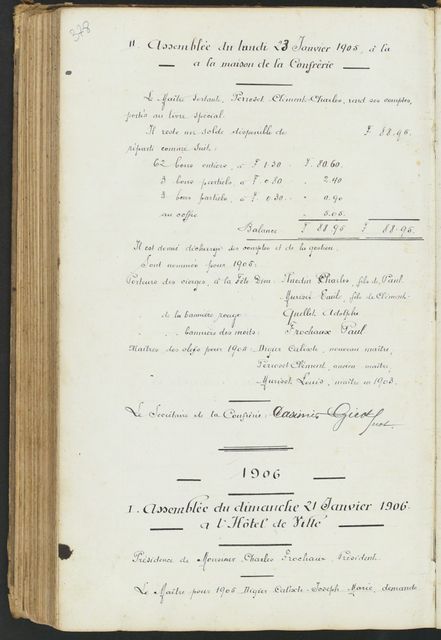 378
II. Assemblée du lundi 23 Janvier 1905, à la
à la maison de la Confrérie
Le Maître sortant, Perroset Clément-Charles, rend ses comptes,
portés au livre spécial.
Il reste un solde disponible de F. 88.95.
réparti comme suit:
62 bons entiers, à F. 1.30 F. 80.60.
3 bons partiels, à F. 0.80 2.40
3 bons partiels, à F. 0.30 0.90
au coffre 5.05.
Balance F. 88.95 F. 88.95.
Il est donné décharge des comptes et de la gestion.
Sont nommés pour 1905:
Porteurs des cierges, à la Fête Dieu: Charles, fils de Paul.
Murset Emile, fils de Clément
de la bannière rouge Quellet Adolphe
bannière des morts: Frochaux Paul
Maîtres des clefs pour 1905: Digier Calixte, nouveau maître,
Perroset Clément, ancien maître,
Muriset Louis, maître en 1903.
Le Secrétaire de la Confrérie: Casimir Gicot
1906
I. Assemblée du dimanche 21 Janvier 1906.
à l'Hôtel de Ville
Présidence de Monsieur Charles Frochaux, Président.
Le Maître pour 1905 Digier Calixte-Joseph-Marie, demande